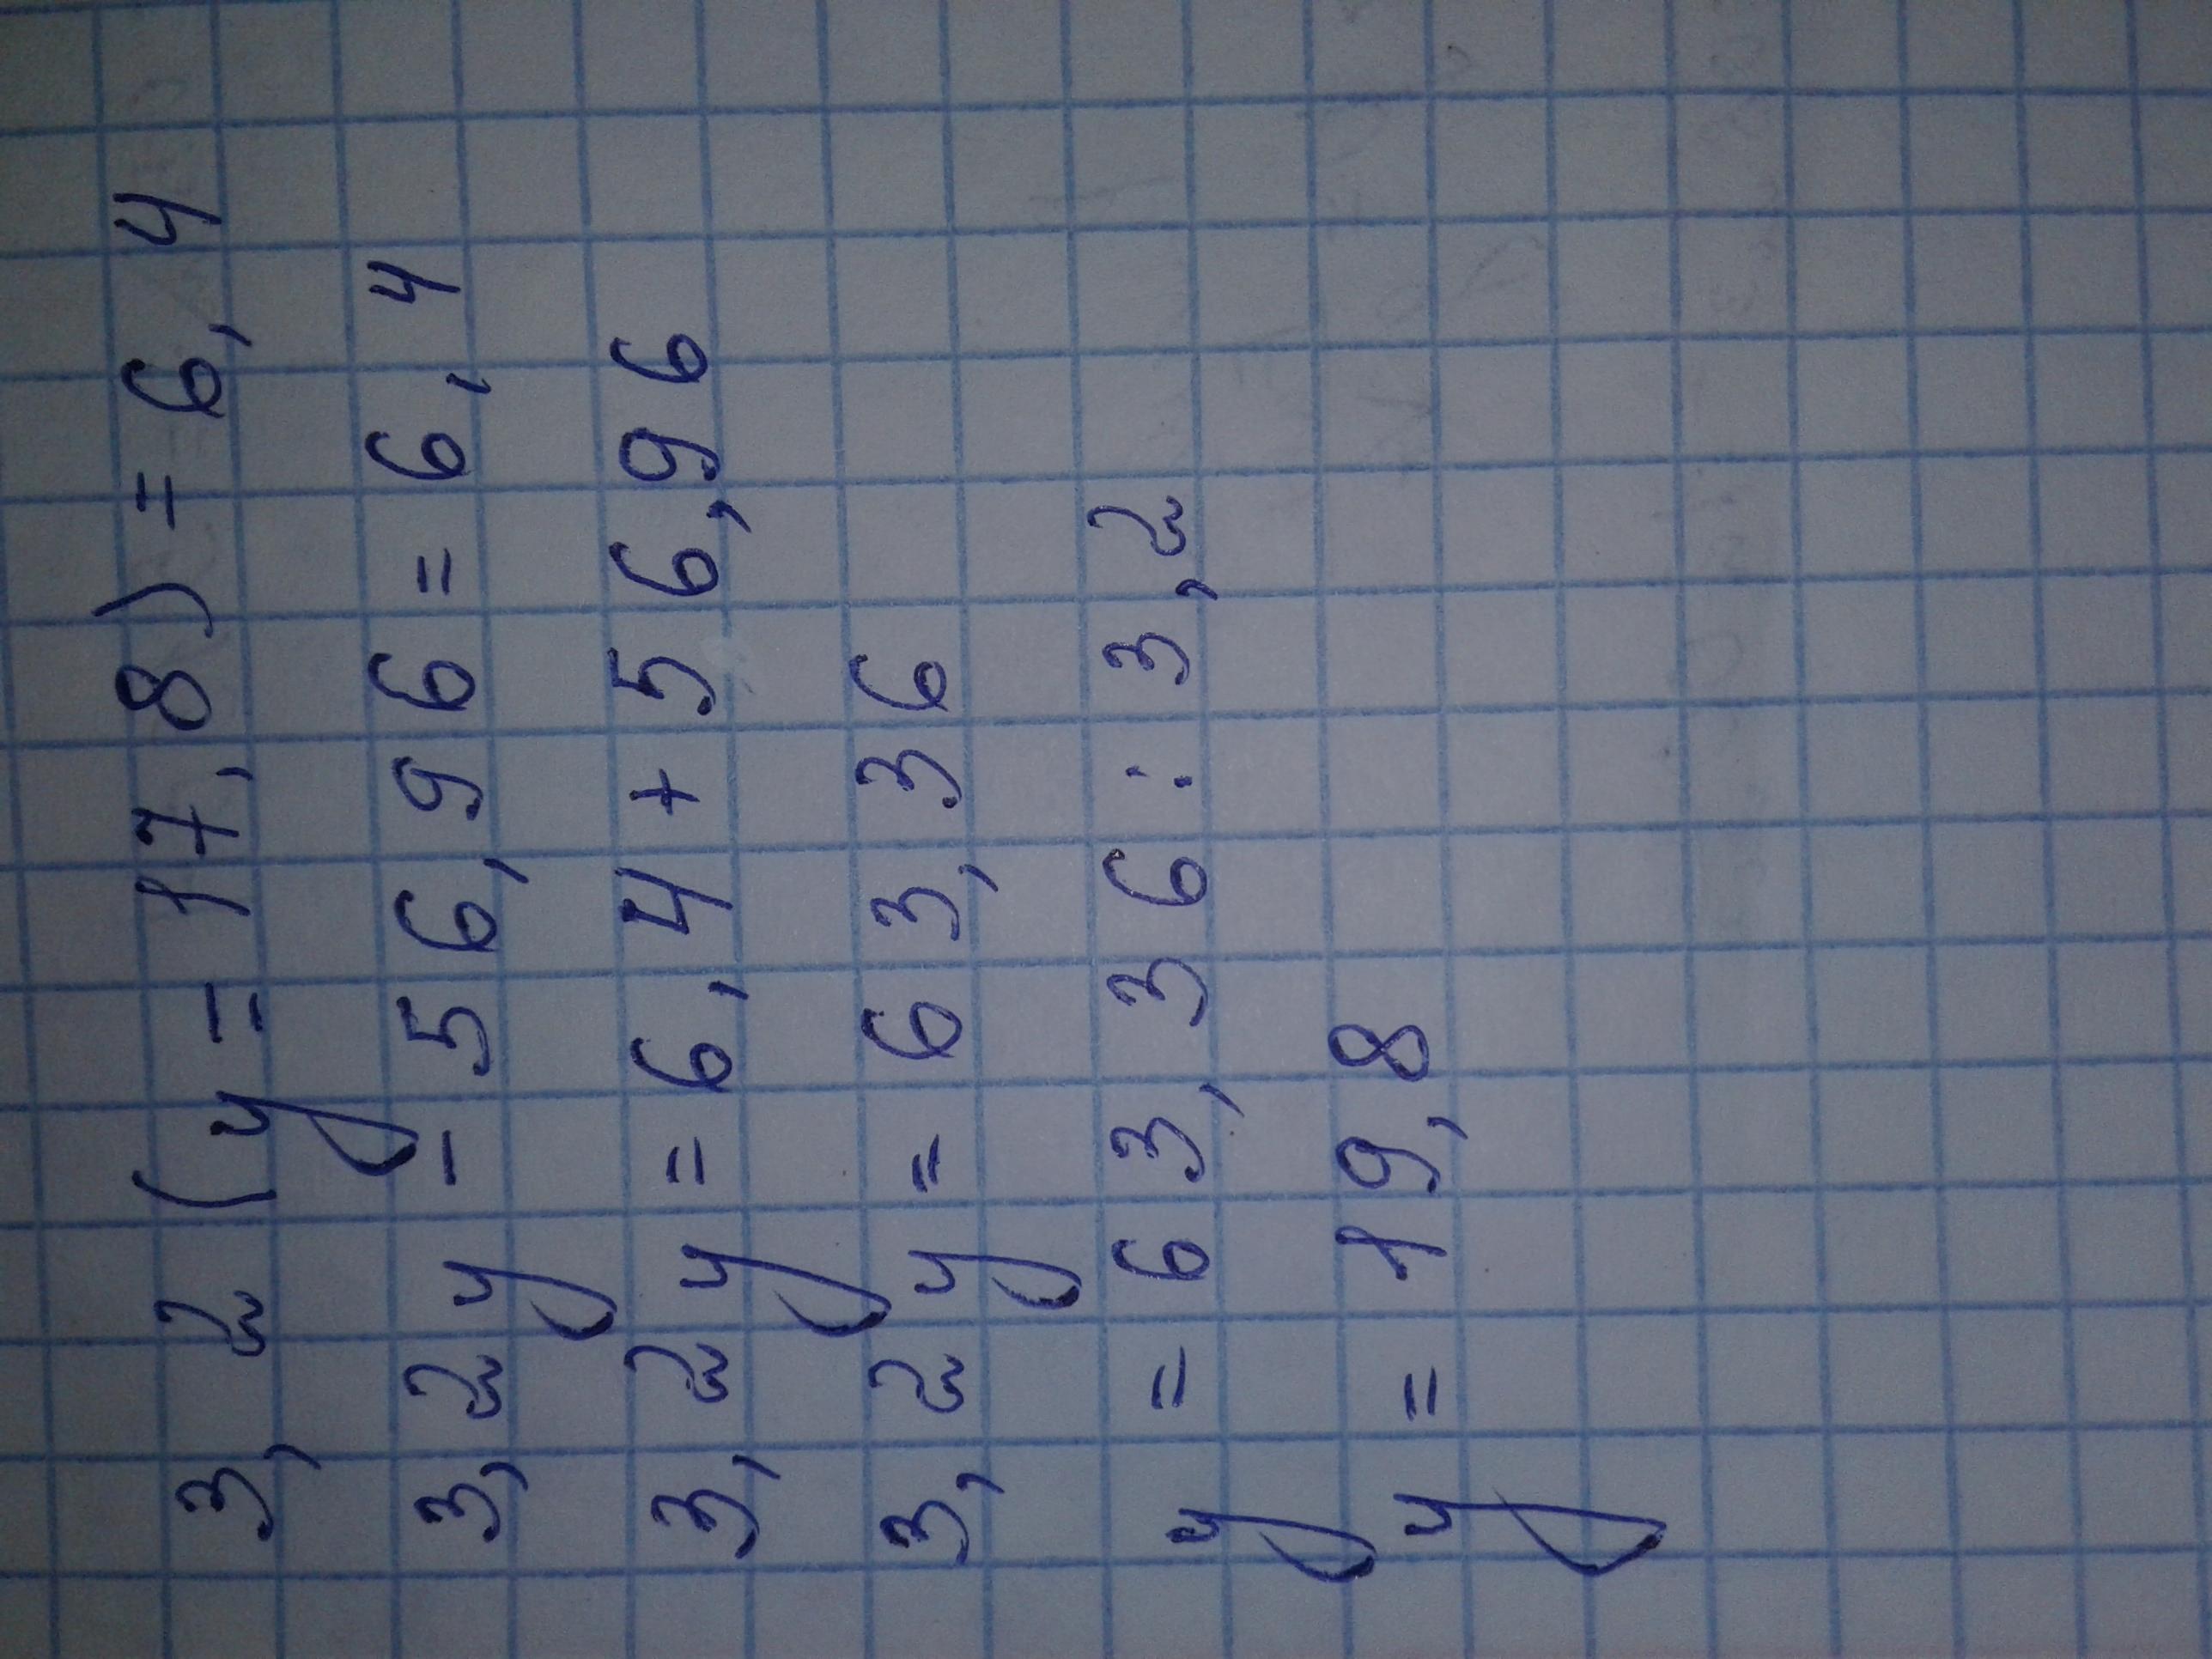 3,2 (y = 17,8) = 6,4
3,2y - 56,96 = 6,4
3,2y = 6,4 + 56,96
3,2y = 63,36
y = 63,36 : 3,2
y = 19,8